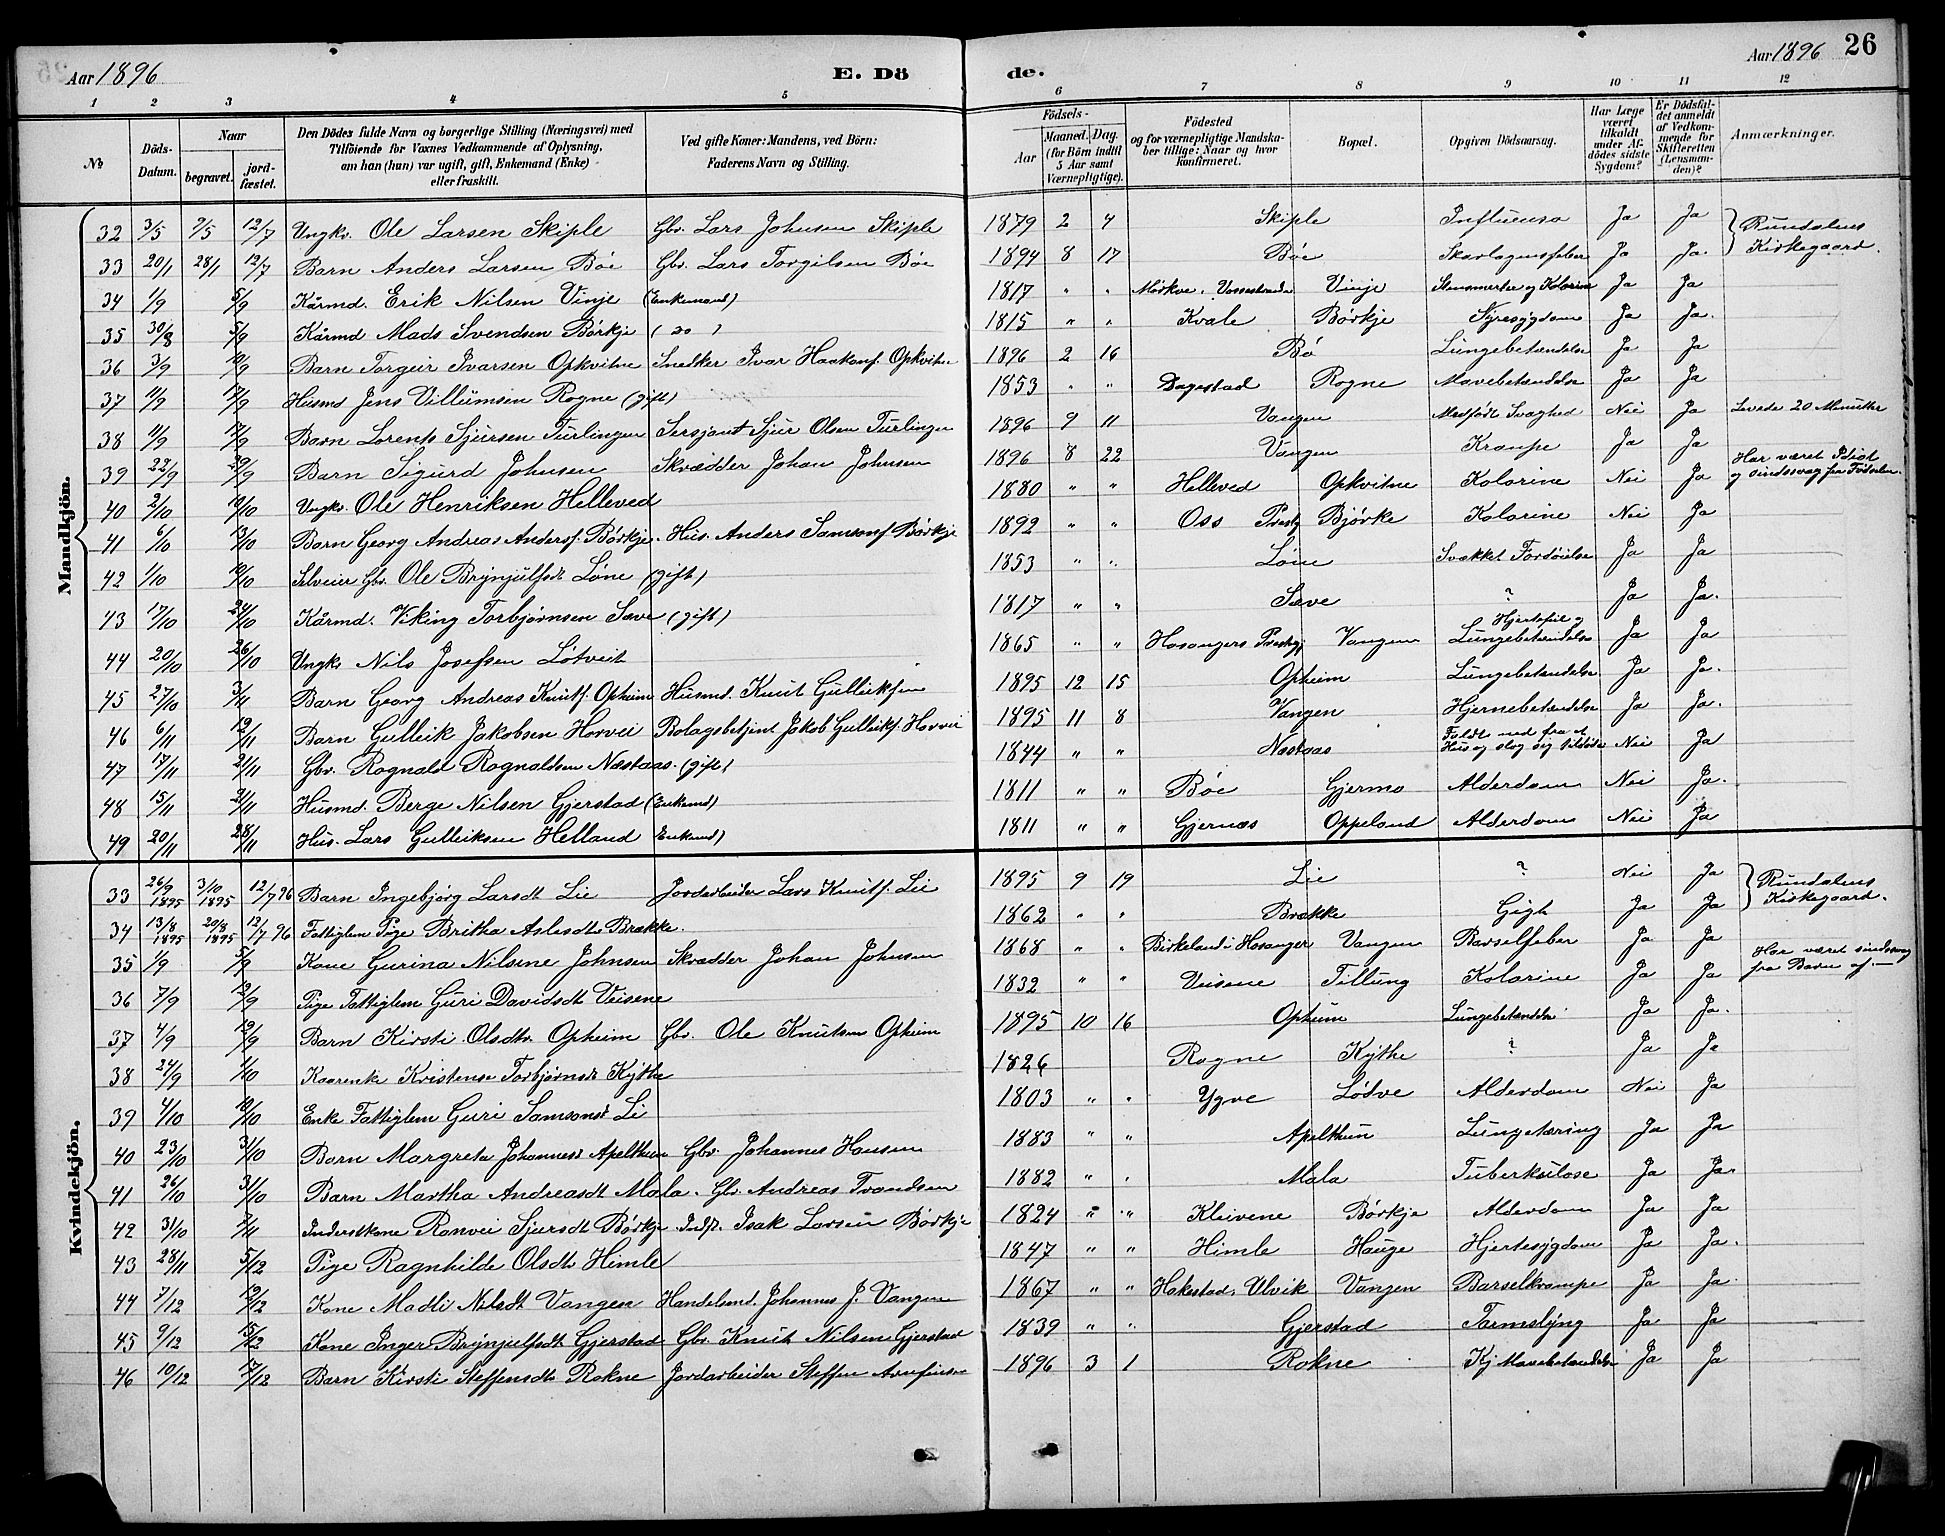 Aar 1896 E. Dö de. Aar 1896 26
1 2 3 4 5 6 7 8 9 10 11 12
No Döds-Datum. Naar begravet. jord-fæstet. Den Dödes fulde Navn og borgerlige Stilling (Næringsvei) med Tilföiende for Voxnes Vedkommende af Oplysning, om han (hun) var ugift, gift, Enkemand (Enke) eller fraskilt. Ved gifte Koner: Mandens, ved Börn: Faderens Navn og Stilling. Födsels- Aar Maaned. Dag. (for Börn indtil 5 Aar samt Værnepligtige). Födested og for værnepligtige Mandskaber tillige: Naar og hvor konfirmeret. Bopæl. Opgiven Dödsaarsag. Har Læge været tilkaldt under Afdödes sidste Sygdom? Er Dödsfaldet anmeldt af Vedkommende for Skifteretten (Lensmanden)? Anmærkninger.
Mandkjön.
32 3/5 7/5 12/7 Ungkr. Ole Larsen Skiple Gbr. Lars Johnsen Skiple 1879 2 4 Skiple Influensa Ja Ja Rundalens Kirkegaard.
33 20/1 28/1 12/7 Barn Anders Larsen Bøe Gbr. Lars Torgilsen Bøe 1894 8 17 Bøe Skarlagensfeber Ja Ja.
34 1/9 5/9 Kårmd. Erik Nilsen Vinje (Enkemand) 1817 " " Mørkve, Vossestranden Vinje Stensmerter og Kolerine Ja Ja
35 30/8 5/9 Kårmd Mads Svendsen Børkje ( do ) 1815 " " Kvale Børkje Nyresygdom Ja Ja.
36 3/9 10/9 Barn Torgeir Ivarsen Opkvitne Snedker Ivar Haakons. Opkvitne 1896 2 16 Bø Lungebetændelse Ja Ja
37 11/9 17/9 Husmd Jens Villumsen Rogne (gift) 1853 " " Dagestad Rogne Mavebetændelse Ja Ja
38 11/9 17/9 Barn Lorents Sjursen Turlingen Sersjant Sjur Olsen Turlingen 1896 9 11 Vangen Medfødt Svaghed Nei Ja Levede 20 Minutter
39 22/9 29/9 Barn Sigurd Johnsen Skrædder Johan Johnsen 1896 8 22 Vangen Krampe Ja Ja
40 2/10 10/10 Ungkr. Ole Henriksen Helleved 1880 " " Helleved Opkvitne Kolerine Nei Ja Har været Idiot og sindssvag fra Fødselen.
41 6/10 13/10 Barn Georg Andreas Anders. Børkje. Hus. Anders Samsons. Børkje 1892 " " Oss Prestg Bjørke Kolerine Nei Ja
42 1/10 10/10 Selveier Gbr. Ole Brynjulfsdt Løne (gift) 1853 " " Løne Svækket Fordøielse Ja Ja
43 17/10 24/10 Kårmd. Viking Torbjørnsen Sæve (gift) 1817 " " Sæve ? Ja Ja.
44 20/10 26/10 Ungkr Nils Josefsen Lotveit 1865 " " Hosangers Prestgj Vangen Hjertefeil og Lungebetændelse Ja Ja
45 27/10 3/11 Barn Georg Andreas Knuts. Opheim Husmd. Knut Gulleiksen 1895 12 15 Opheim Lungebetændelse Ja Ja.
46 6/11 12/11 Barn Gulleik Jakobsen Horvei Bolagsbetjent Jakob Gulleiks. Horvei 1895 11 8 Vangen Hjernebetændelse Ja Ja.
47 17/11 21/11 Gbr. Rognald Rognaldsen Næstaas. (gift) 1844 " " Næstaas Faldt ned fra et Hus og slog sig tildøde Nei Ja
48 15/11 21/11 Husmd. Berge Nilsen Gjerstad (Enkemd) 1811 " " Bøe Gjermo Alderdom Nei Ja.
49 20/11 28/11 Hus. Lars Gulleiksen Helland Enkemd) 1811 " " Gjernæs Oppeland Alderdom Nei Ja
Kvindekjön.
33 26/9 1895 3/10 1895 12/7 96 Barn Ingebjørg Larsdt Lie Jordarbeider Lars Knuts. Lie 1895 9 19 Lie ? Nei Ja Rundalens Kirkegaard.
34 13/8 1895 20/8 1895 12/7 96 Fattiglem Pige Britha Aslesdt Brække. 1862 " " Brække Gigt Ja Ja
35 1/9 5/9 Kone Gurina Nilsine Johnsen Skrædder Johan Johnsen 1868 " " Birkeland i Hosanger Vangen Barselfeber Ja Ja
36 7/9 12/9 Pige Fattiglem Guri Davidsdt Veisene 1832 " " Veisene Tillung Kolerine Ja Ja Har været sindssvag fra Barn af.—
37 4/9 12/9 Barn Kirsti Olsdtr. Opheim Gbr. Ole Knutsen Opheim 1895 10 16 Opheim Lungebetændelse Ja Ja.
38 24/9 1/10 Kaarenke Kristense Torbjørnsdt Kythe 1826 Rogne Kythe ? Ja Ja
39 4/10 10/10 Enke Fattiglem Guri Samsonsdt Li 1803 " " Ygre Lødve Alderdom Nei Ja
40 23/10 31/10 Barn Margreta Johannesdt Apelthun Gbr. Johannes Hansen 1883 " " Apelthun Lungetæring Ja Ja
41 26/10 31/10 Barn Martha Andreasdt Mala. Gbr. Andreas Trondsen 1882 " " Mala Tuberkulose Ja Ja.
42 31/10 7/11 Inderstkone Ranvei Sjursdt Børkje Indst. Isak Larsen Børkje 1824 " " Kleivene Børkje Alderdom Ja Ja
43 28/11 5/12 Pige Ragnhilde Olsdt Himle 1847 " " Himle Hauge Hjertesygdom Ja Ja.
44 7/12 12/12 Kone Madli Nilsdt Vangen Handelsmd. Johannes J. Vangen 1867 " " Hakestad, Ulvik Vangen Barselkrampe Ja Ja.
45 9/12 15/12 Kone Inger Brynjulfsdt Gjerstad Gbr. Knut Nilsen Gjerstad 1839 " " Gjerstad Tarmslyng Ja Ja
46 10/12 17/12 Barn Kirsti Steffensdt Rokne Jordarbeider Steffen Arnfinsen 1896 3 1 Rokne Kj Mavebetændelse Ja Ja